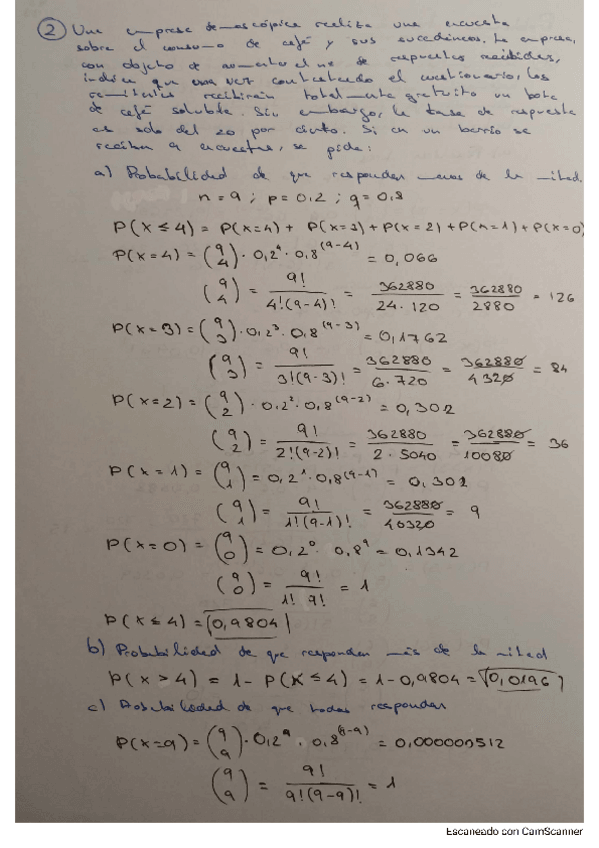 ② Una empresa demoscópica realiza una encuesta
sobre el consumo de café y sus sucedáneos. La empresa,
con objeto de aumentar el nº de respuestas recibidas,
indica que una vez contestado el cuestionario, los
remitentes recibirán totalmente gratuito un bote
de café soluble. Sin embargo, la tasa de respuesta
es solo del 20 por ciento. Si en un barrio se
reciben 9 encuestas, se pide:
a) Probabilidad de que respondan menos de la mitad.
n = 9 ; p = 0,2 ; q = 0,8
P(x ≤ 4) = P(x=4) + P(x=3) + P(x=2) + P(x=1) + P(x=0)
P(x=4) = (9 4) · 0,2⁴ · 0,8^(9-4) = 0,066
(9 4) = 9! / 4!(9-4)! = 362880 / 24 · 120 = 362880 / 2880 = 126
P(x=3) = (9 3) · 0,2³ · 0,8^(9-3) = 0,1762
(9 3) = 9! / 3!(9-3)! = 362880 / 6 · 720 = 362880 / 4320 = 84
P(x=2) = (9 2) · 0,2² · 0,8^(9-2) = 0,302
(9 2) = 9! / 2!(9-2)! = 362880 / 2 · 5040 = 362880 / 10080 = 36
P(x=1) = (9 1) = 0,2¹ · 0,8^(9-1) = 0,302
(9 1) = 9! / 1!(9-1)! = 362880 / 40320 = 9
P(x=0) = (9 0) = 0,2⁰ · 0,8⁹ = 0,1342
(9 0) = 9! / 1! 9! = 1
P(x ≤ 4) = 0,9804
b) Probabilidad de que respondan más de la mitad
P(x > 4) = 1 - P(x ≤ 4) = 1 - 0,9804 = 0,0196
c) Probabilidad de que todas respondan
P(x=9) = (9 9) · 0,2⁹ · 0,8^(9-9) = 0,000000512
(9 9) = 9! / 9!(9-9)! = 1
Escaneado con CamScanner